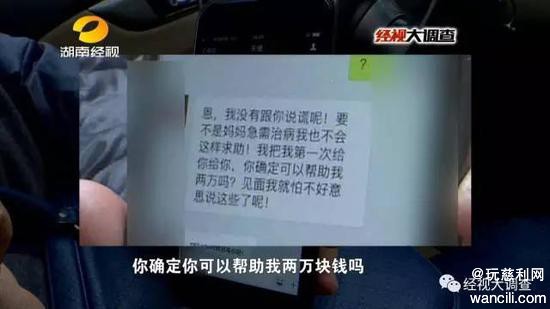 湖南经视
经视大调查
?
恩，我没有跟你说谎呢！要
不是妈妈急需治病我也不会
这样求助！我把我第一次给
你给你，你确定可以帮助我
两万吗？见面我就怕不好意
思说这些了呢！
你确定你可以帮助我两万块钱吗
@玩慈利网
经视大调查
wancili.com